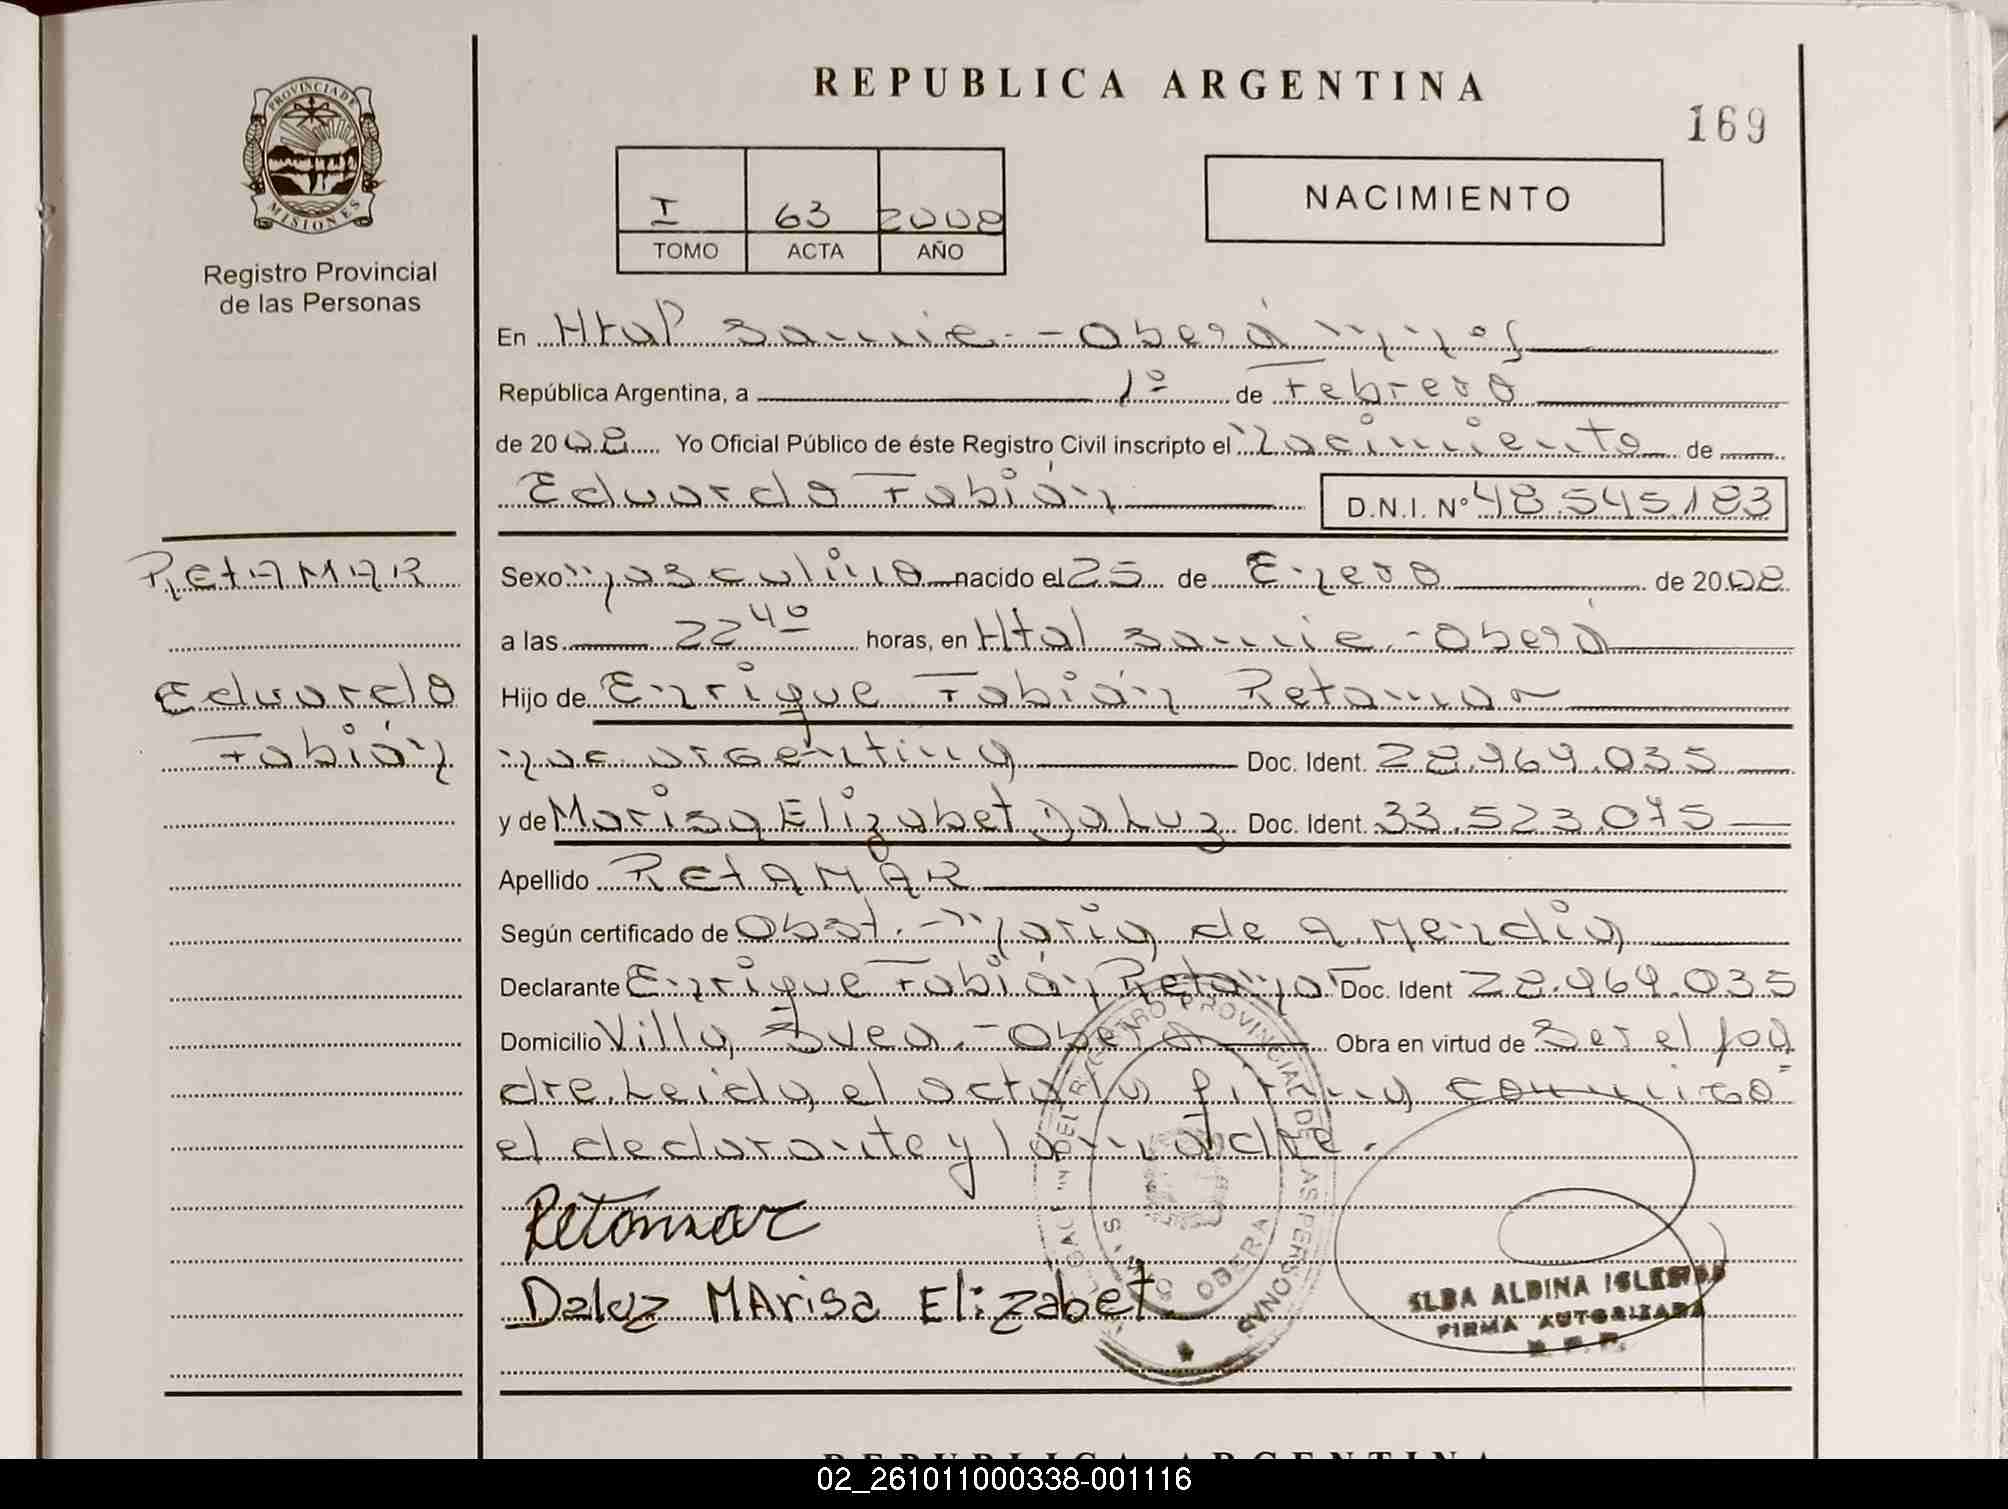 REPUBLICA ARGENTINA
169
PROVINCIA DE
MISIONES
Registro Provincial
de las Personas
I 63 2008
TOMO ACTA AÑO
NACIMIENTO
En Htal Samic - Oberá Mnes
República Argentina, a 1º de Febrero
de 2008 Yo Oficial Público de éste Registro Civil inscripto el Nacimiento de
Eduardo Fabián D.N.I. Nº 48.545.183
RETAMAR
Eduardo
Fabián
Sexo Masculino nacido el 25 de Enero de 2008
a las 22 40 horas, en Htal Samic - Oberá
Hijo de Enrique Fabián Retamar
nac argentina Doc. Ident. 28.969.035
y de Marisa Elizabet Da Luz Doc. Ident. 33.523.075
Apellido RETAMAR
Según certificado de Obst. - María de
Declarante Enrique Fabián Retamar Doc. Ident 28.969.035
Domicilio Villa - Oberá Obra en virtud de Ser el pa
dre. Leida el acta la firma conmigo
el declarante y la madre.
Retamar
Daluz MArisa Elizabet.
REGISTRO PROVINCIAL DE LAS PERSONAS
OBERA
ELBA ALBINA IGLESIAS
FIRMA AUTORIZADA
R. P. P.
REPUBLICA ARGENTINA
02_261011000338-001116